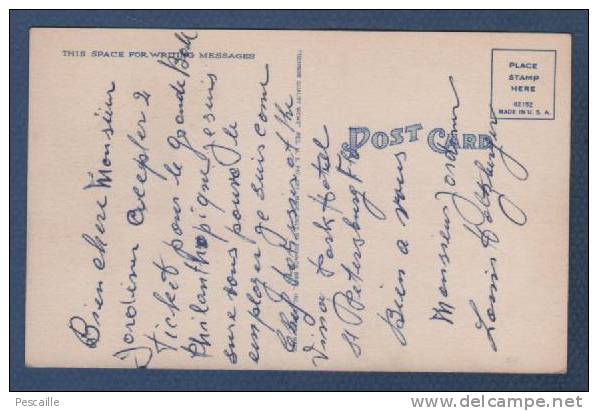 THIS SPACE FOR WRITING MESSAGES
POST CARD
PLACE
STAMP
HERE
62152
MADE IN U. S. A.
Bien chere Monsieur
Jordienn accepter 2
Ticket pour le grande Ball
Philanthropique je suis
sure vous pouvez le
employer je suis come
Chef patissier at the
Vinoy Park Hotel
St Petersburg Fla
Bien a vous
Monsieur Jordienn
Louis
Pescaille
www.delcampe.net